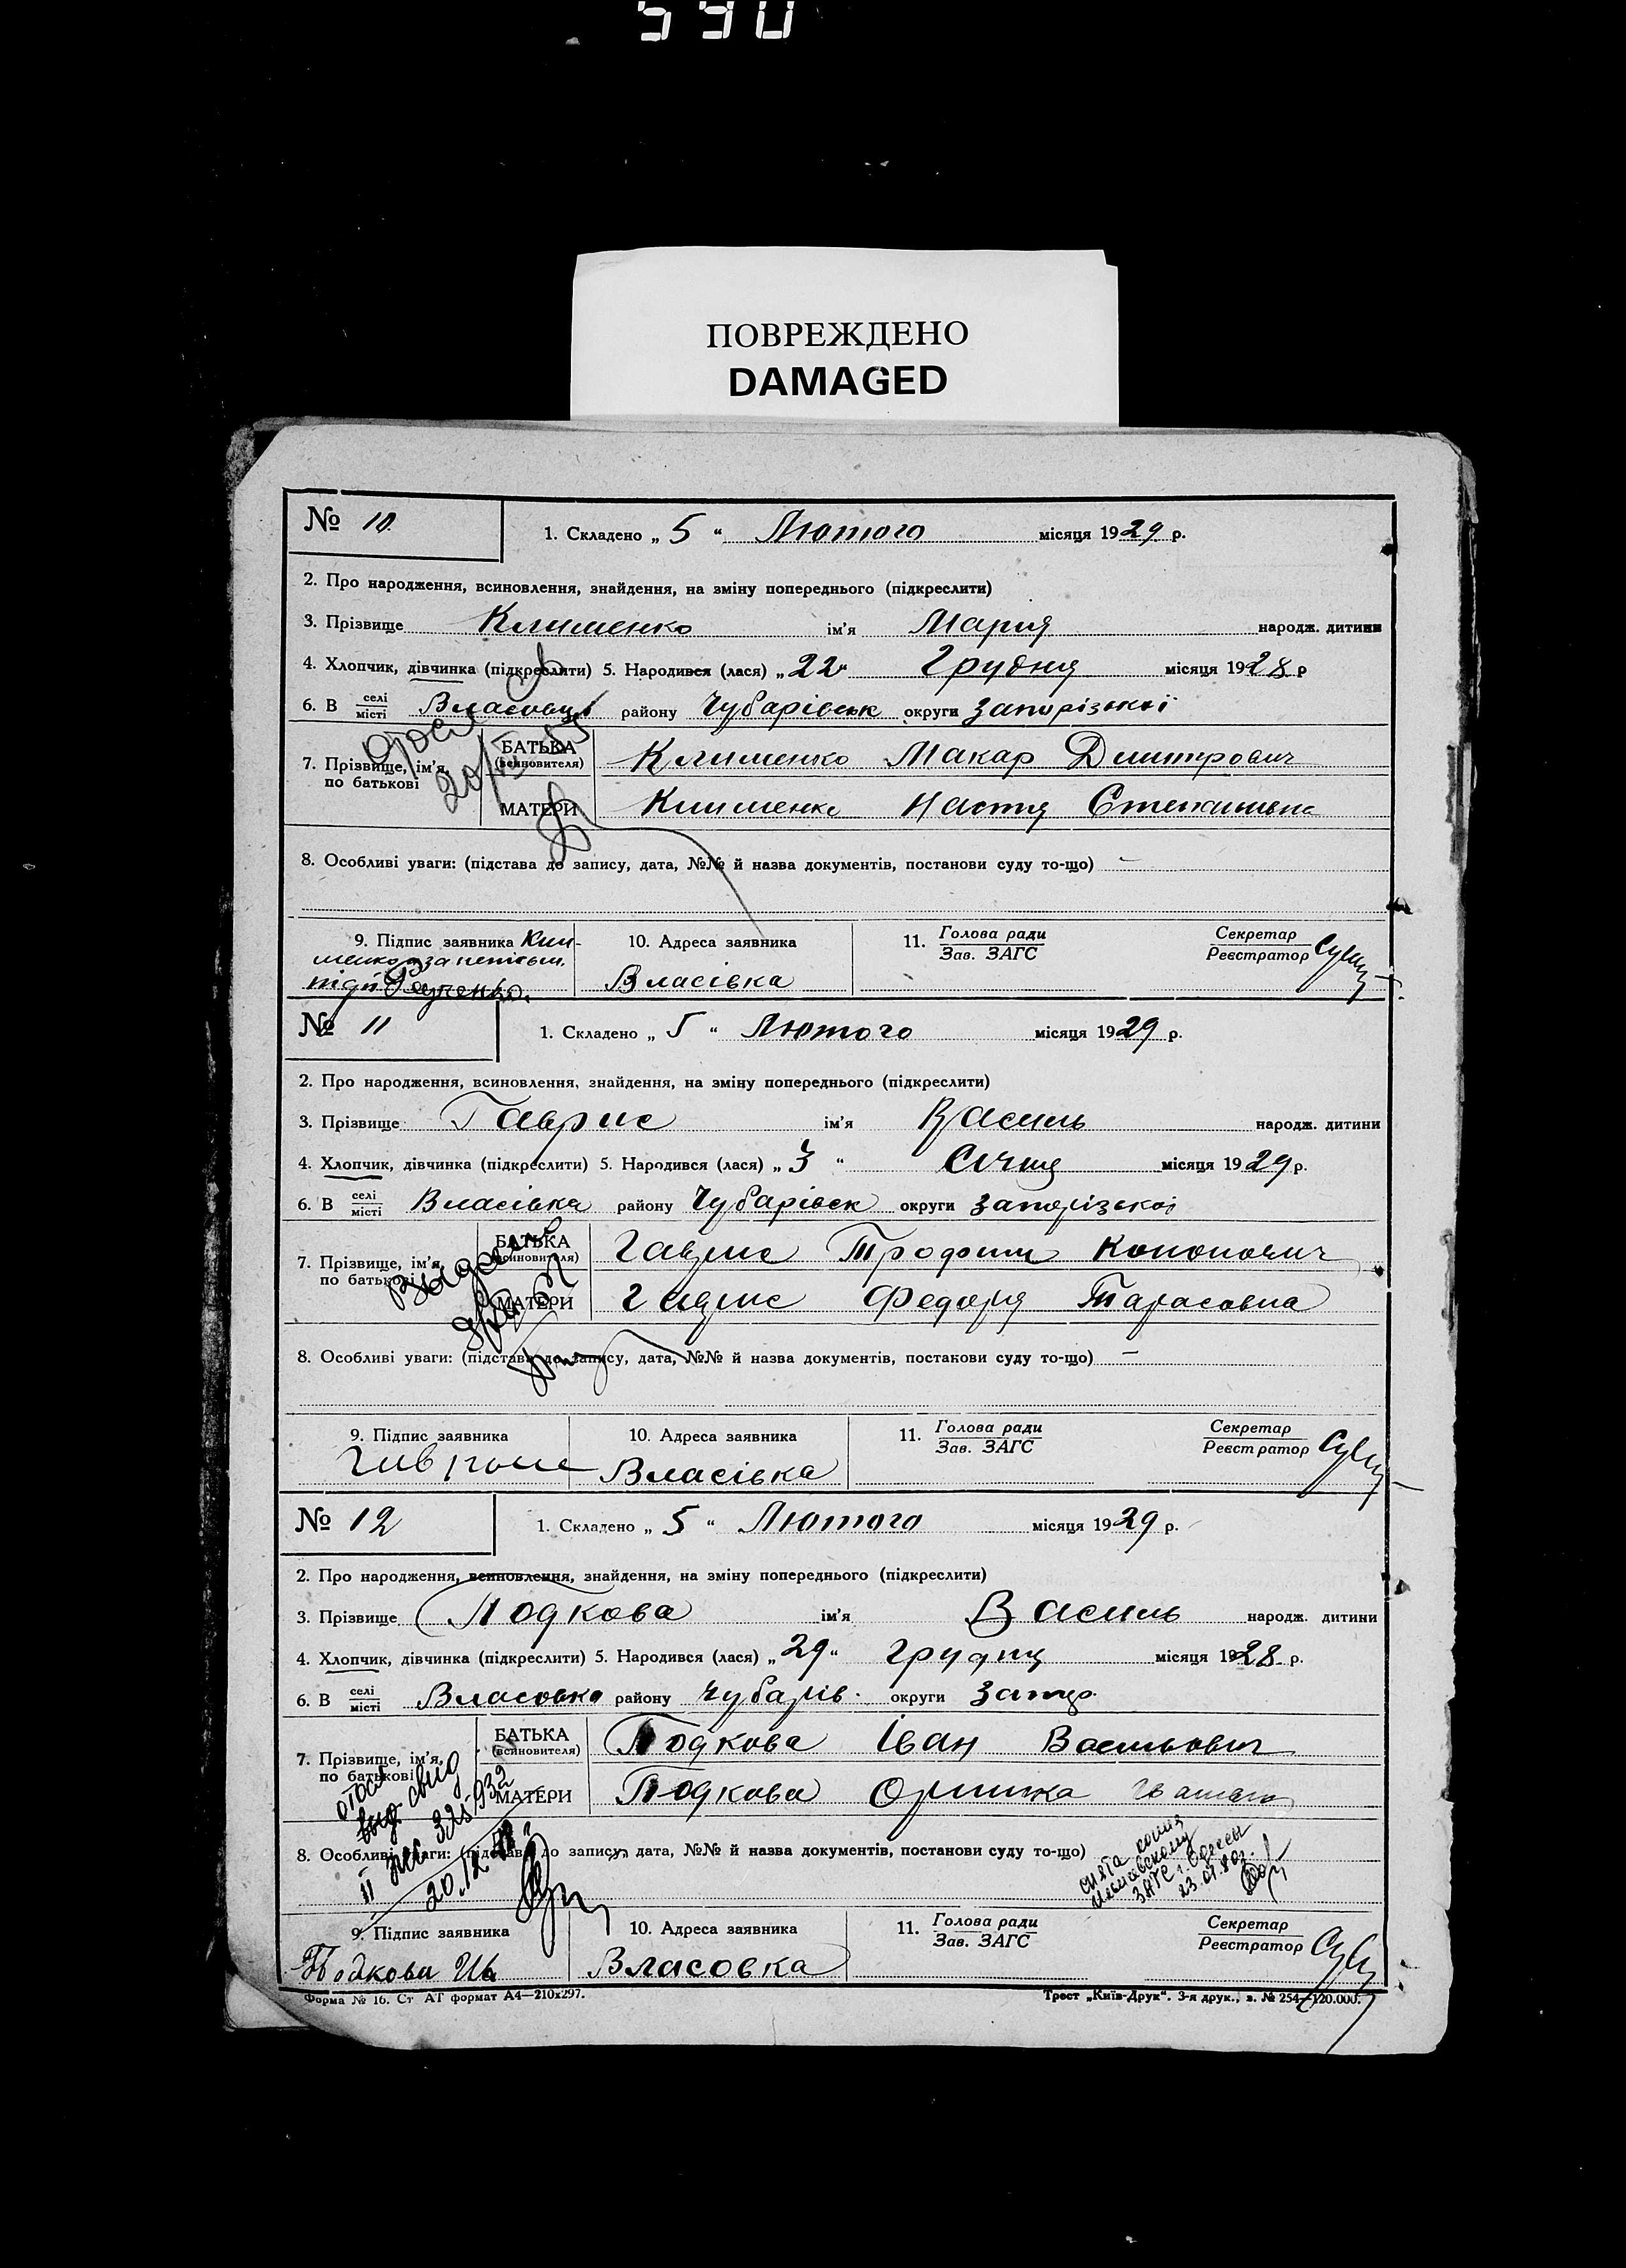 590
ПОВРЕЖДЕНО
DAMAGED
№ 10. 1. Складено „ 5 “ Лютого місяця 1929 р.
2. Про народження, всиновлення, знайдення, на зміну попереднього (підкреслити)
3. Прізвище Клименко ім'я Мария народж. дитини
4. Хлопчик, дівчинка (підкреслити) 5. Народився (лася) „ 22 “ Грудня місяця 1928 р
6. В селі місті Власовці району Чубарівськ округи Запорізької
7. Прізвище, ім'я, по батькові БАТЬКА (всиновителя) Клименко Макар Дмитрович
МАТЕРИ Клименко Настя Степановна
8. Особливі уваги: (підстава до запису, дата, №№ й назва документів, постанови суду то-що) —
9. Підпис заявника Кли-
менко за
10. Адреса заявника
Власівка
11. Голова ради
Зав. ЗАГС
Секретар
Реєстратор
№ 11 1. Складено „ 5 “ Лютого місяця 1929 р.
2. Про народження, всиновлення, знайдення, на зміну попереднього (підкреслити)
3. Прізвище Гаврис ім'я Василь народж. дитини
4. Хлопчик, дівчинка (підкреслити) 5. Народився (лася) „ 3 “ Січня місяця 1929 р.
6. В селі місті Власівка району Чубарівск округи Запорізької
7. Прізвище, ім'я, по батькові БАТЬКА (всиновителя) Гаврис Трофим Кононович
МАТЕРИ Гаврис Федоря Тарасовна
8. Особливі уваги: (підстава до запису, дата, №№ й назва документів, постанови суду то-що) —
9. Підпис заявника
10. Адреса заявника
Власівка
11. Голова ради
Зав. ЗАГС
Секретар
Реєстратор
№ 12 1. Складено „ 5 “ Лютого місяця 1929 р.
2. Про народження, всиновлення, знайдення, на зміну попереднього (підкреслити)
3. Прізвище Подкова ім'я Василь народж. дитини
4. Хлопчик, дівчинка (підкреслити) 5. Народився (лася) „ 29 “ грудня місяця 1928 р.
6. В селі місті Власовка району Чубарів. округи Запор.
7. Прізвище, ім'я, по батькові БАТЬКА (всиновителя) Подкова Іван Васильович
МАТЕРИ Подкова Оришка
20.12
8. Особливі уваги: (підстава до запису, дата, №№ й назва документів, постанови суду то-що)
снята копия
ЗАГС г. Одессы
9. Підпис заявника
Подкова Ив
10. Адреса заявника
Власовка
11. Голова ради
Зав. ЗАГС
Секретар
Реєстратор
Форма № 16. Ст АТ формат А4—210х297.
Трест „Київ-Друк“. 3-я друк., з. № 254—120.000.